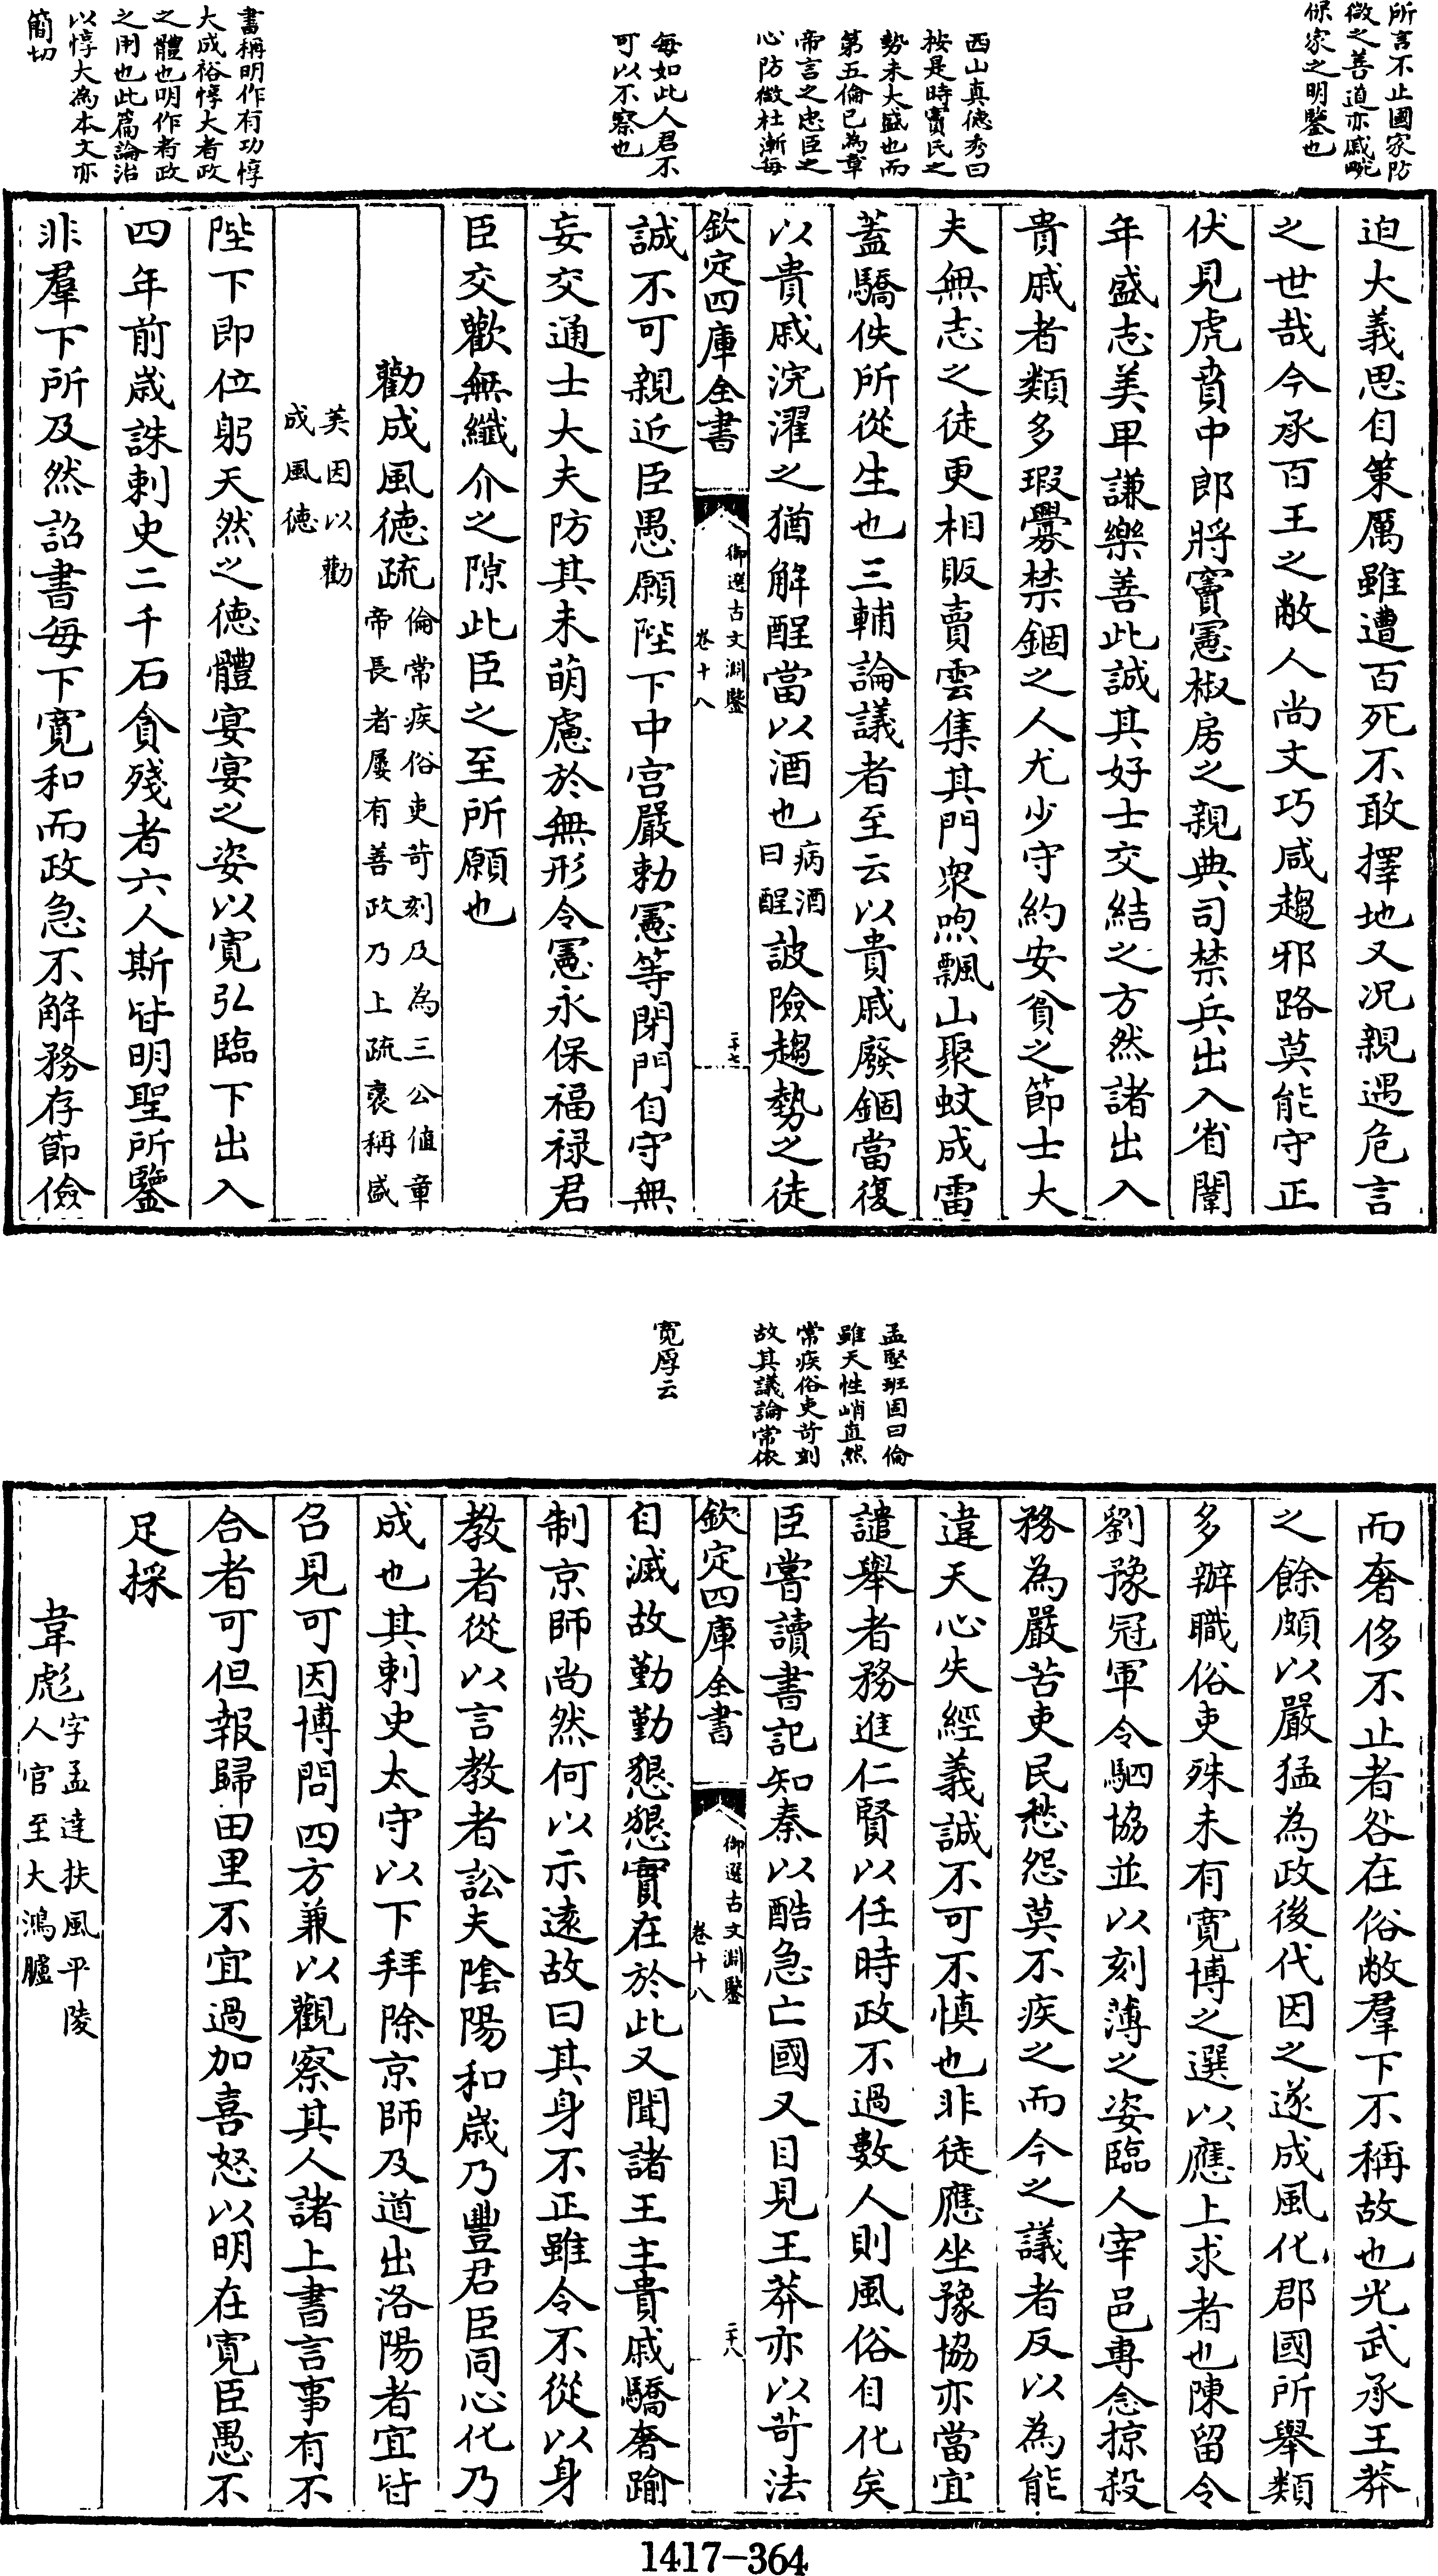 所言不止國家防
微之善道亦戚畹
保家之明鑒也
西山真徳秀曰
按是時竇氏之
勢未大盛也而
第五倫已為章
帝言之忠臣之
心防微杜漸每
每如此人君不
可以不察也
書稱明作有功惇
大成裕惇大者政
之體也明作者政
之用也此篇論治
以惇大為本文亦
簡切
迫大義思自策厲雖遭百死不敢擇地又况親遇危言
之世哉今承百王之敝人尚文巧咸趨邪路莫能守正
伏見虎賁中郎將竇憲椒房之親典司禁兵出入省闥
年盛志美卑謙樂善此誠其好士交結之方然諸出入
貴戚者類多瑕釁禁錮之人尤少守約安貧之節士大
夫無志之徒更相販賣雲集其門衆喣飄山聚蚊成雷
蓋驕佚所從生也三輔論議者至云以貴戚廢錮當復
以貴戚浣濯之猶解酲當以酒也病酒曰酲詖險趨勢之徒
欽定四庫全書
御選古文淵鑒
卷十八
二十七
誠不可親近臣愚願陛下中宫嚴勅憲等閉門自守無
妄交通士大夫防其未萌慮於無形令憲永保福禄君
臣交歡無纖介之隙此臣之至所願也
勸成風徳疏倫常疾俗吏苛刻及為三公值章帝長者屢有善政乃上疏褒稱盛
美因以勸成風徳
陛下即位躬天然之徳體宴宴之姿以寛弘臨下出入
四年前歲誅刺史二千石貪殘者六人斯皆明聖所鑒
非羣下所及然詔書每下寛和而政急不解務存節儉
孟堅班固曰倫
雖天性峭直然
常疾俗吏苛刻
故其議論常依
寛厚云
而奢侈不止者咎在俗敝羣下不稱故也光武承王莽
之餘頗以嚴猛為政後代因之遂成風化郡國所舉類
多辦職俗吏殊未有寛博之選以應上求者也陳留令
劉豫冠軍令駟協並以刻薄之姿臨人宰邑專念掠殺
務為嚴苦吏民愁怨莫不疾之而今之議者反以為能
違天心失經義誠不可不慎也非徒應坐豫協亦當宜
譴舉者務進仁賢以任時政不過數人則風俗自化矣
臣嘗讀書記知秦以酷急亡國又目見王莽亦以苛法
欽定四庫全書
御選古文淵鑒
卷十八
二十八
自滅故勤勤懇懇實在於此又聞諸王主貴戚驕奢踰
制京師尚然何以示逺故曰其身不正雖令不從以身
教者從以言教者訟夫隂陽和歲乃豐君臣同心化乃
成也其刺史太守以下拜除京師及道出洛陽者宜皆
召見可因博問四方兼以觀察其人諸上書言事有不
合者可但報歸田里不宜過加喜怒以明在寛臣愚不
足採
韋彪字孟達扶風平陵人官至大鴻臚
1417-364